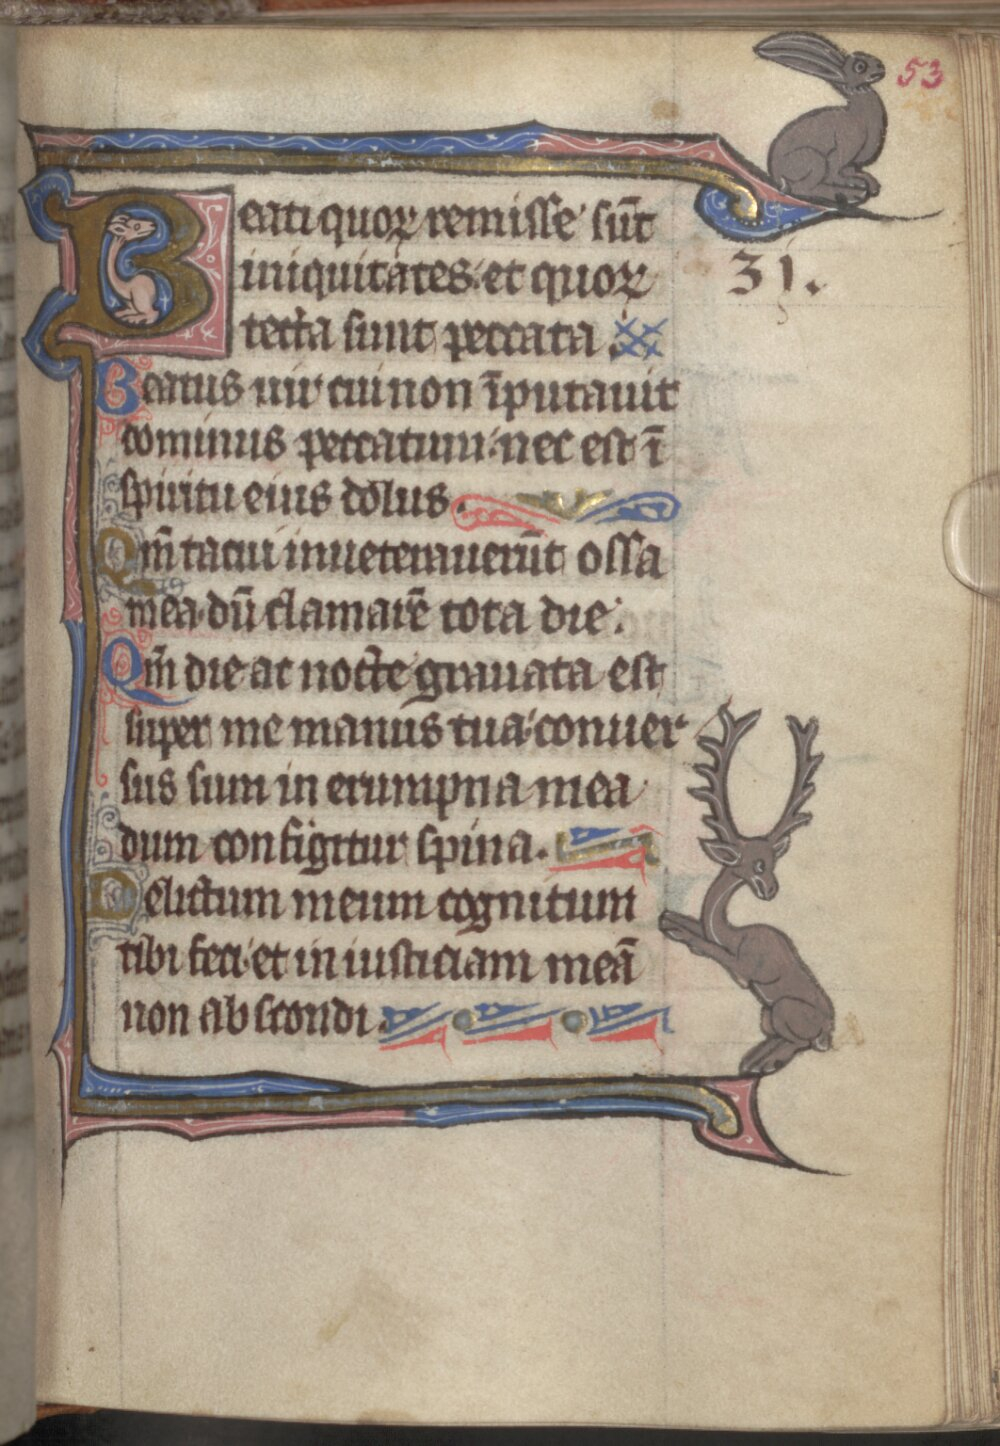 53
Beati quoꝝ remisse sūt
iniquitates· et quoꝝ
tecta sunt peccata.
31.
Beatus uir cui non īputauit
dominus peccatum· nec est ī
spiritu eius dolus.
Qm̄ tacui inueterauerūt ossa
mea· dū clamarē tota die.
Qm̄ die ac nocte grauata est
super me manus tua· conuer
sus sum in erumpna mea
dum configitur spina.
Delictum meum cognitum
tibi feci· et in iusticiam meā
non abscondi.